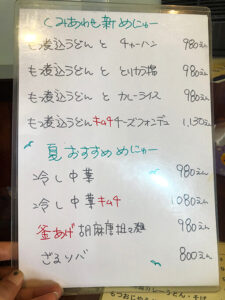 くみあわせ新めにゅー
もつ煮込うどん と チャーハン 980えん
もつ煮込うどん と とりから揚 980えん
もつ煮込うどん と カレーライス 980えん
もつ煮込うどんキムチチーズフォンデュ 1,130えん
夏おすすめめにゅー
冷し中華 980えん
冷し中華キムチ 1080えん
釜あげ胡麻唐担々麺 980えん
ざるソバ 800えん